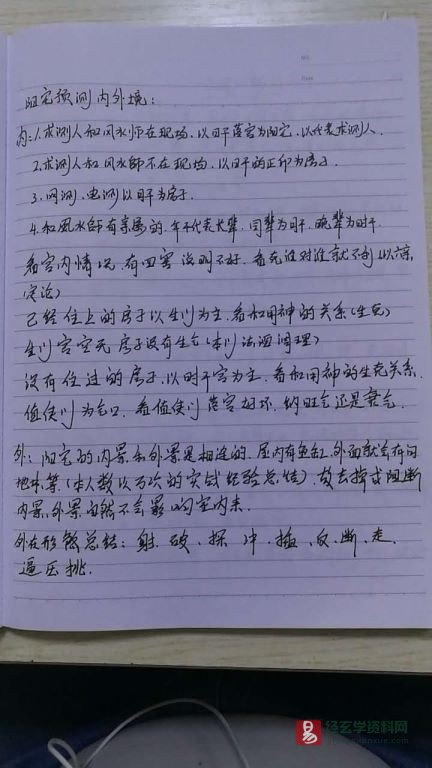 阳宅预测内外境:
内:1.求测人和风水师在现场,以日干落宫为阳宅,以代表求测人.
2.求测人和风水师不在现场,以日干的正印为房子.
3.网测、电测以日干为房子.
4.和風水師有亲属的,年干代表长辈,同辈为日干,晚辈为时干.
看宫内情况,有四害说明不好,看克谁对谁就不利(以六亲
定论)
已经住上的房子以生门为主.看和用神的关系(生克)
生门宫空亡 房子没有生气(本门法派调理)
没有住过的房子,以时干宫为主,看和用神的生克关系.
值使门为气口,看值使门落宫好坏,纳旺气还是衰气.
外:阳宅的内景和外景是相连的,屋内有鱼缸,外面就会有
地 等(本人数以万次的实战经验总结)故去掉或阻断
内景,外景自然不会影响室内来.
外在形煞总结:射、破、探、冲、插、反、断、走、
逼压挑.
易 经玄学资料网